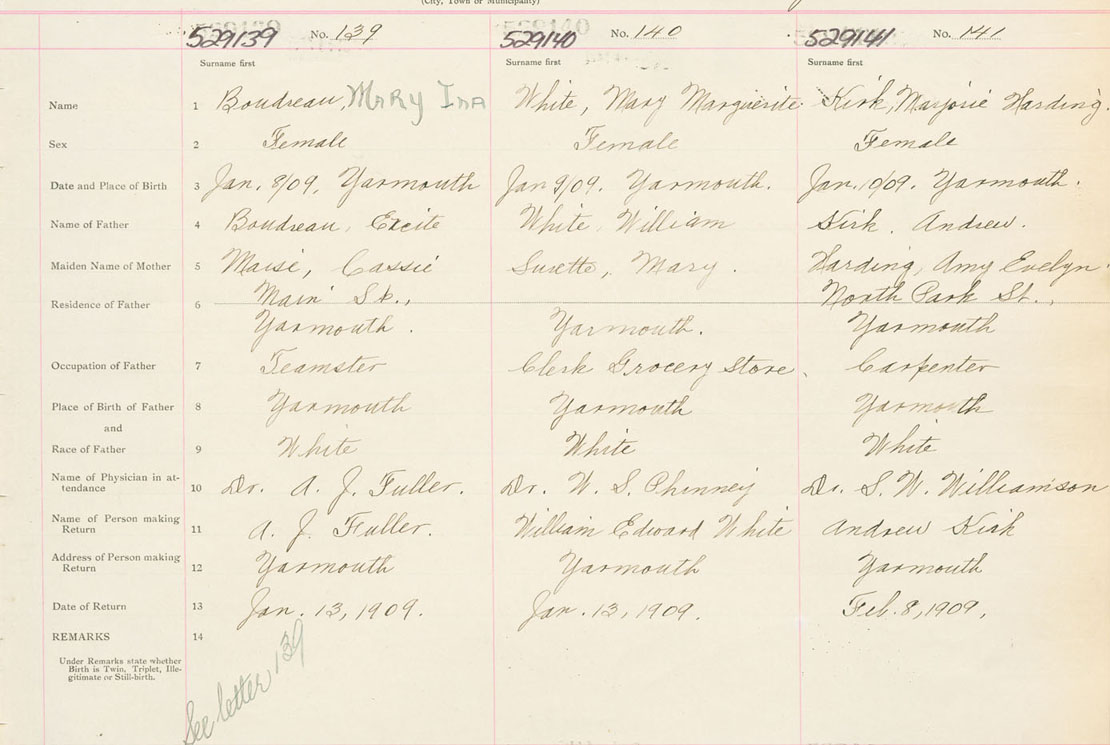 (City, Town or Municipality)
529139 No. 139 529140 No. 140 529141 No. 141
Surname first Surname first Surname first
Name 1 Boudreau, Mary Ina White, Mary Marguerite Kirk, Marjorie Harding.
Sex 2 Female Female Female
Date and Place of Birth 3 Jan. 8/09, Yarmouth Jan 9/09. Yarmouth. Jan. 10/09. Yarmouth.
Name of Father 4 Boudreau, Excite White, William Kirk, Andrew.
Maiden Name of Mother 5 Maise, Cassie Surette, Mary. Harding, Amy Evelyn.
Residence of Father 6 Main St., North Park St.,
Yarmouth. Yarmouth. Yarmouth
Occupation of Father 7 Teamster Clerk Grocery Store, Carpenter
Place of Birth of Father 8 Yarmouth Yarmouth Yarmouth
and
Race of Father 9 White White White
Name of Physician in at-
tendance 10 Dr. A. J. Fuller. Dr. W. S. Phinney Dr. S. W. Williamson
Name of Person making
Return 11 A. J. Fuller. William Edward White Andrew Kirk
Address of Person making
Return 12 Yarmouth Yarmouth Yarmouth
Date of Return 13 Jan. 13, 1909. Jan. 13, 1909. Feb. 8, 1909.
REMARKS 14
Under Remarks state whether
Birth is Twin, Triplet, Ille-
gitimate or Still-birth.
See letter 139